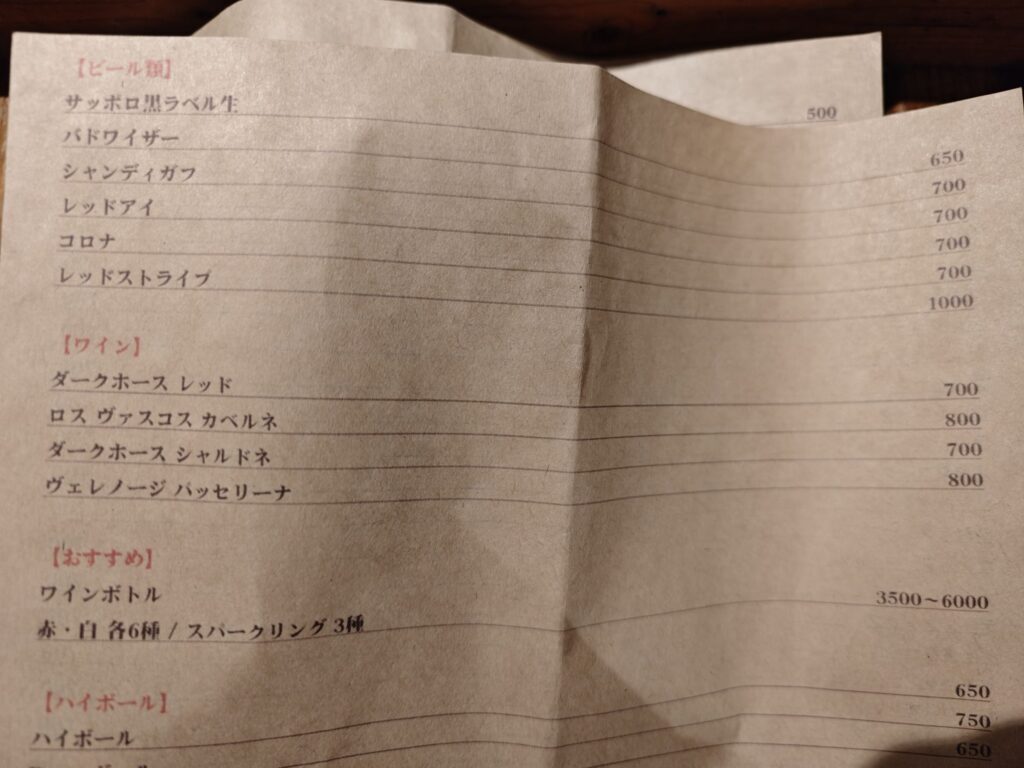 500
【ビール類】
サッポロ黒ラベル生 650
バドワイザー 700
シャンディガフ 700
レッドアイ 700
コロナ 700
レッドストライプ 1000
【ワイン】
ダークホース レッド 700
ロス ヴァスコス カベルネ 800
ダークホース シャルドネ 700
ヴェレノージ パッセリーナ 800
【おすすめ】
ワインボトル 3500～6000
赤・白 各6種 / スパークリング 3種
【ハイボール】
ハイボール 650
750
650